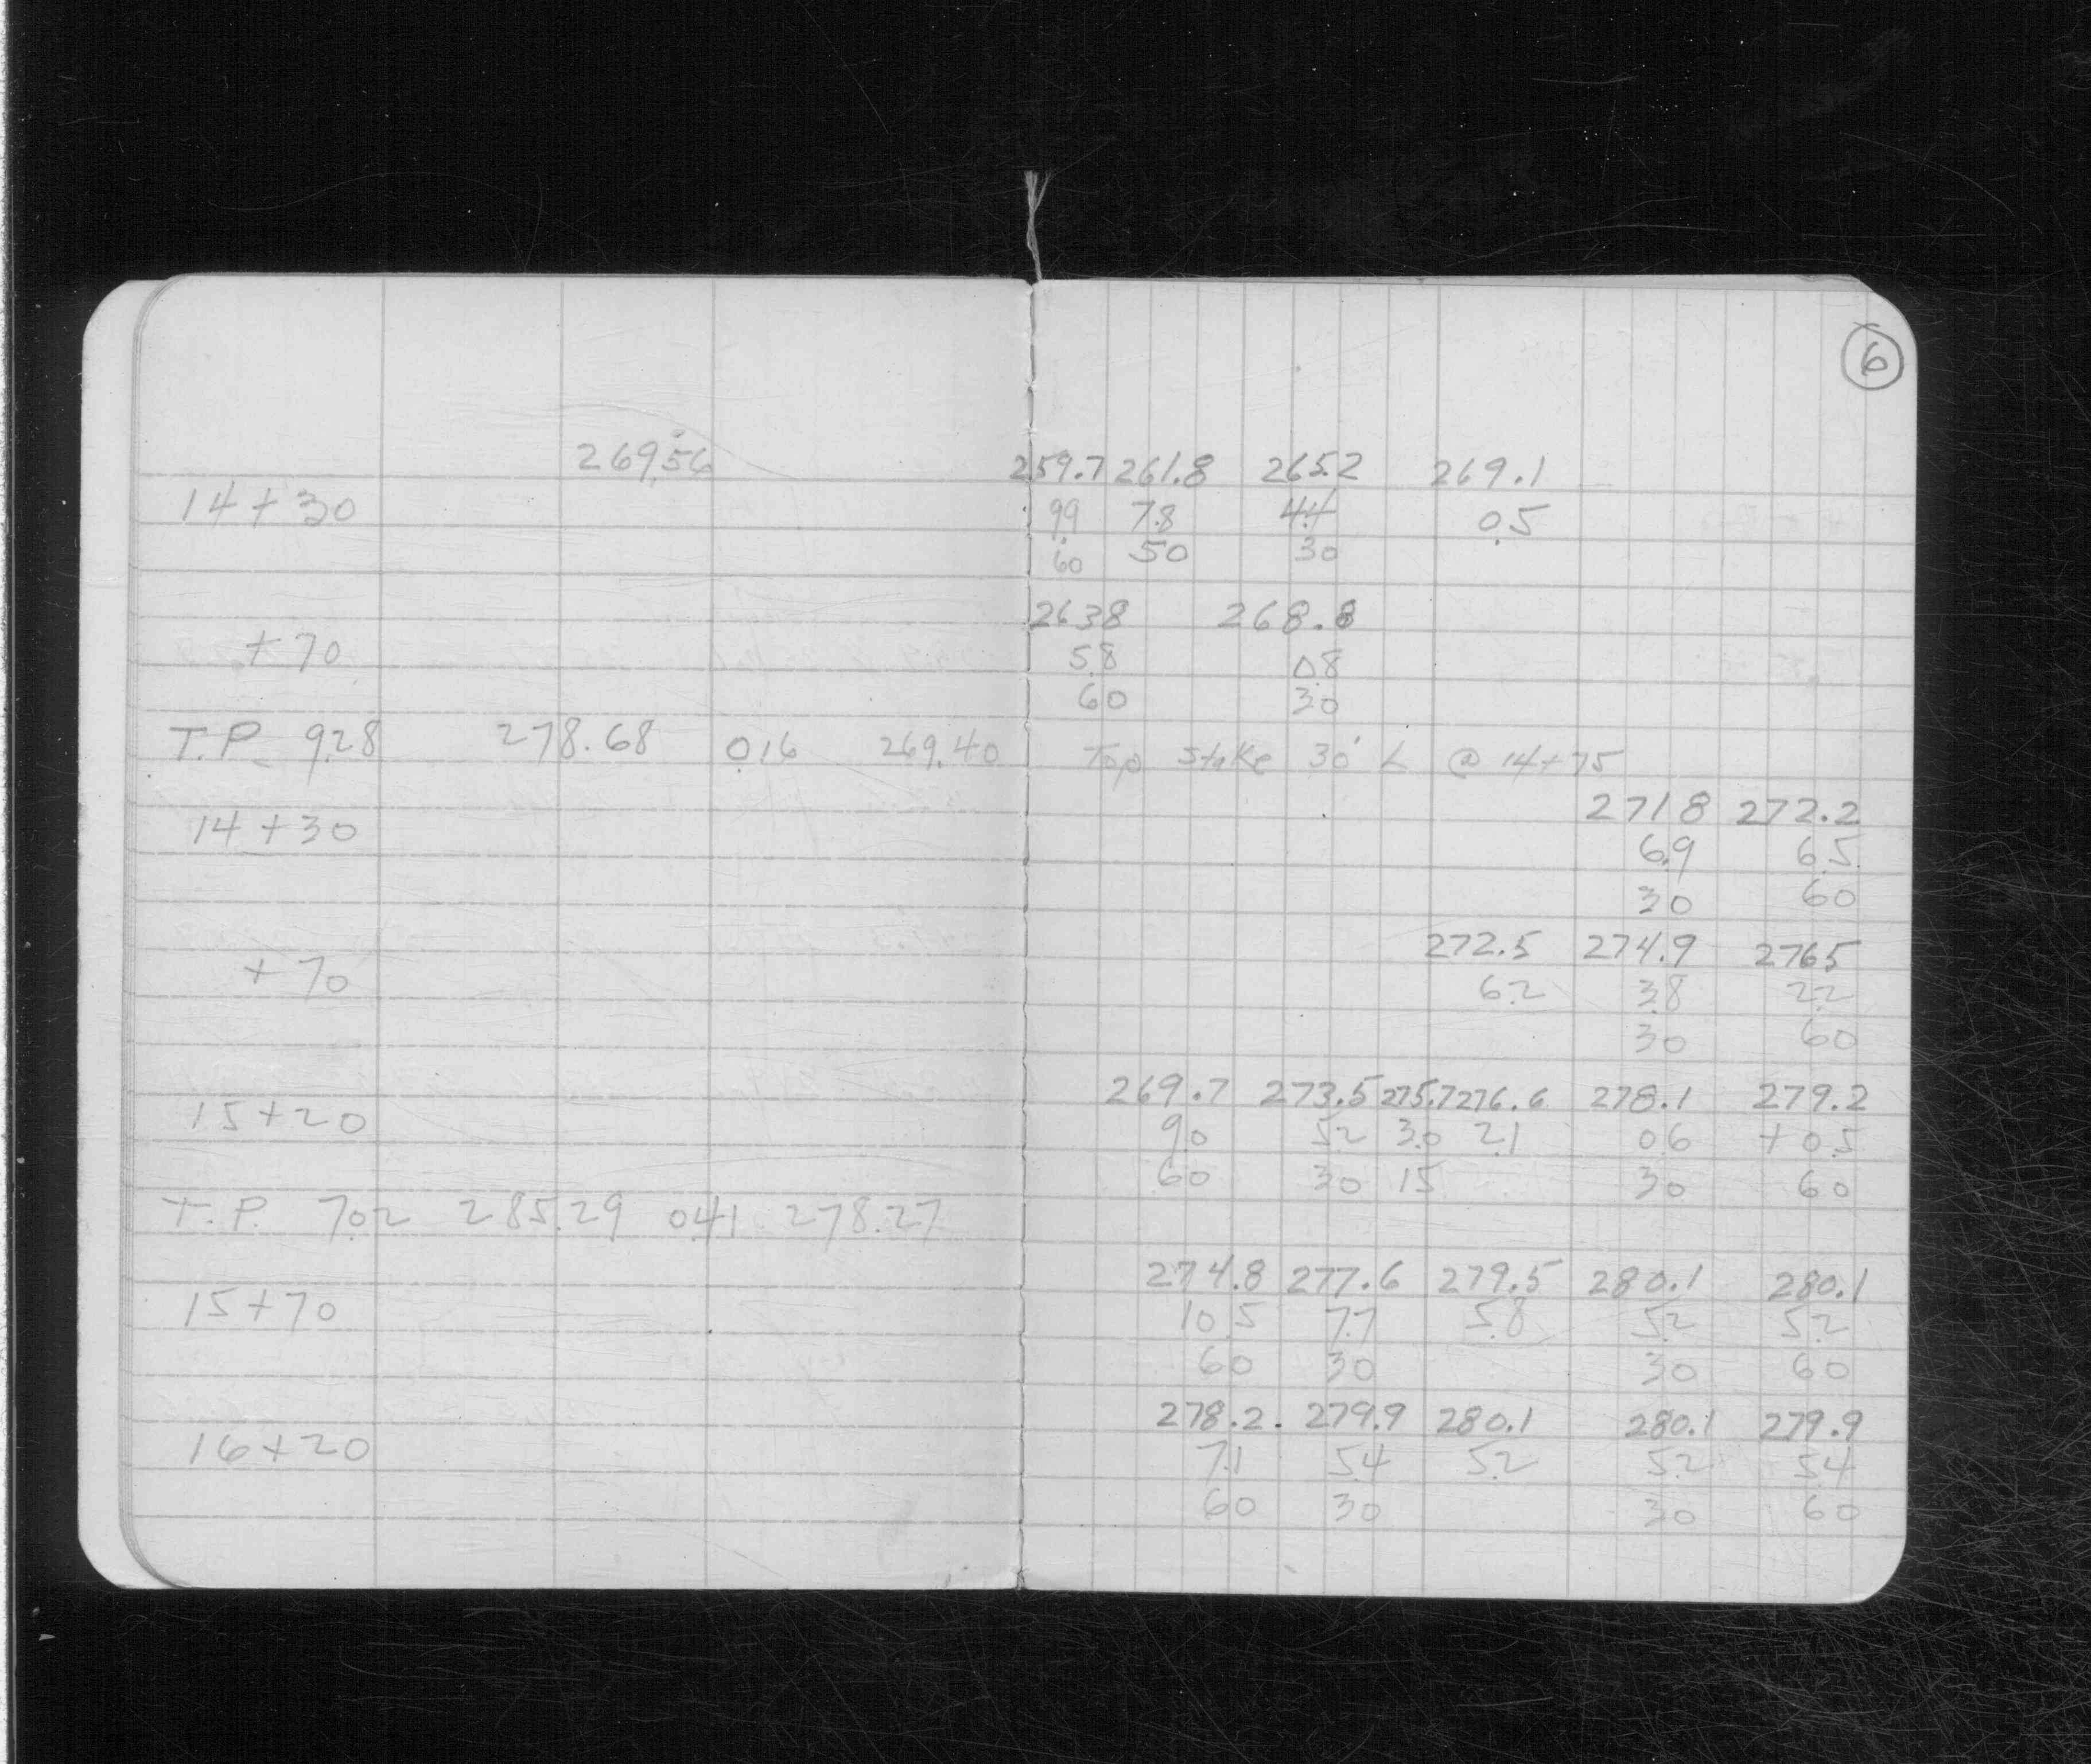 6
269.56 259.7 261.8 265.2 269.1
14+30 9.9 7.8 4.4 0.5
60 50 30
263.8 268.8
+70 5.8 0.8
60 30
T.P. 9.28 278.68 0.16 269.40 Top Stake 30' L @ 14+75
271.8 272.2
14+30 6.9 6.5
30 60
272.5 274.9 276.5
+70 6.2 3.8 2.2
30 60
269.7 273.5 275.7 276.6 278.1 279.2
15+20 9.0 5.2 3.0 2.1 0.6 +0.5
60 30 15 30 60
T.P. 7.02 285.29 0.41 278.27
274.8 277.6 279.5 280.1 280.1
15+70 10.5 7.7 5.8 5.2 5.2
60 30 30 60
278.2 279.9 280.1 280.1 279.9
16+20 7.1 5.4 5.2 5.2 5.4
60 30 30 60